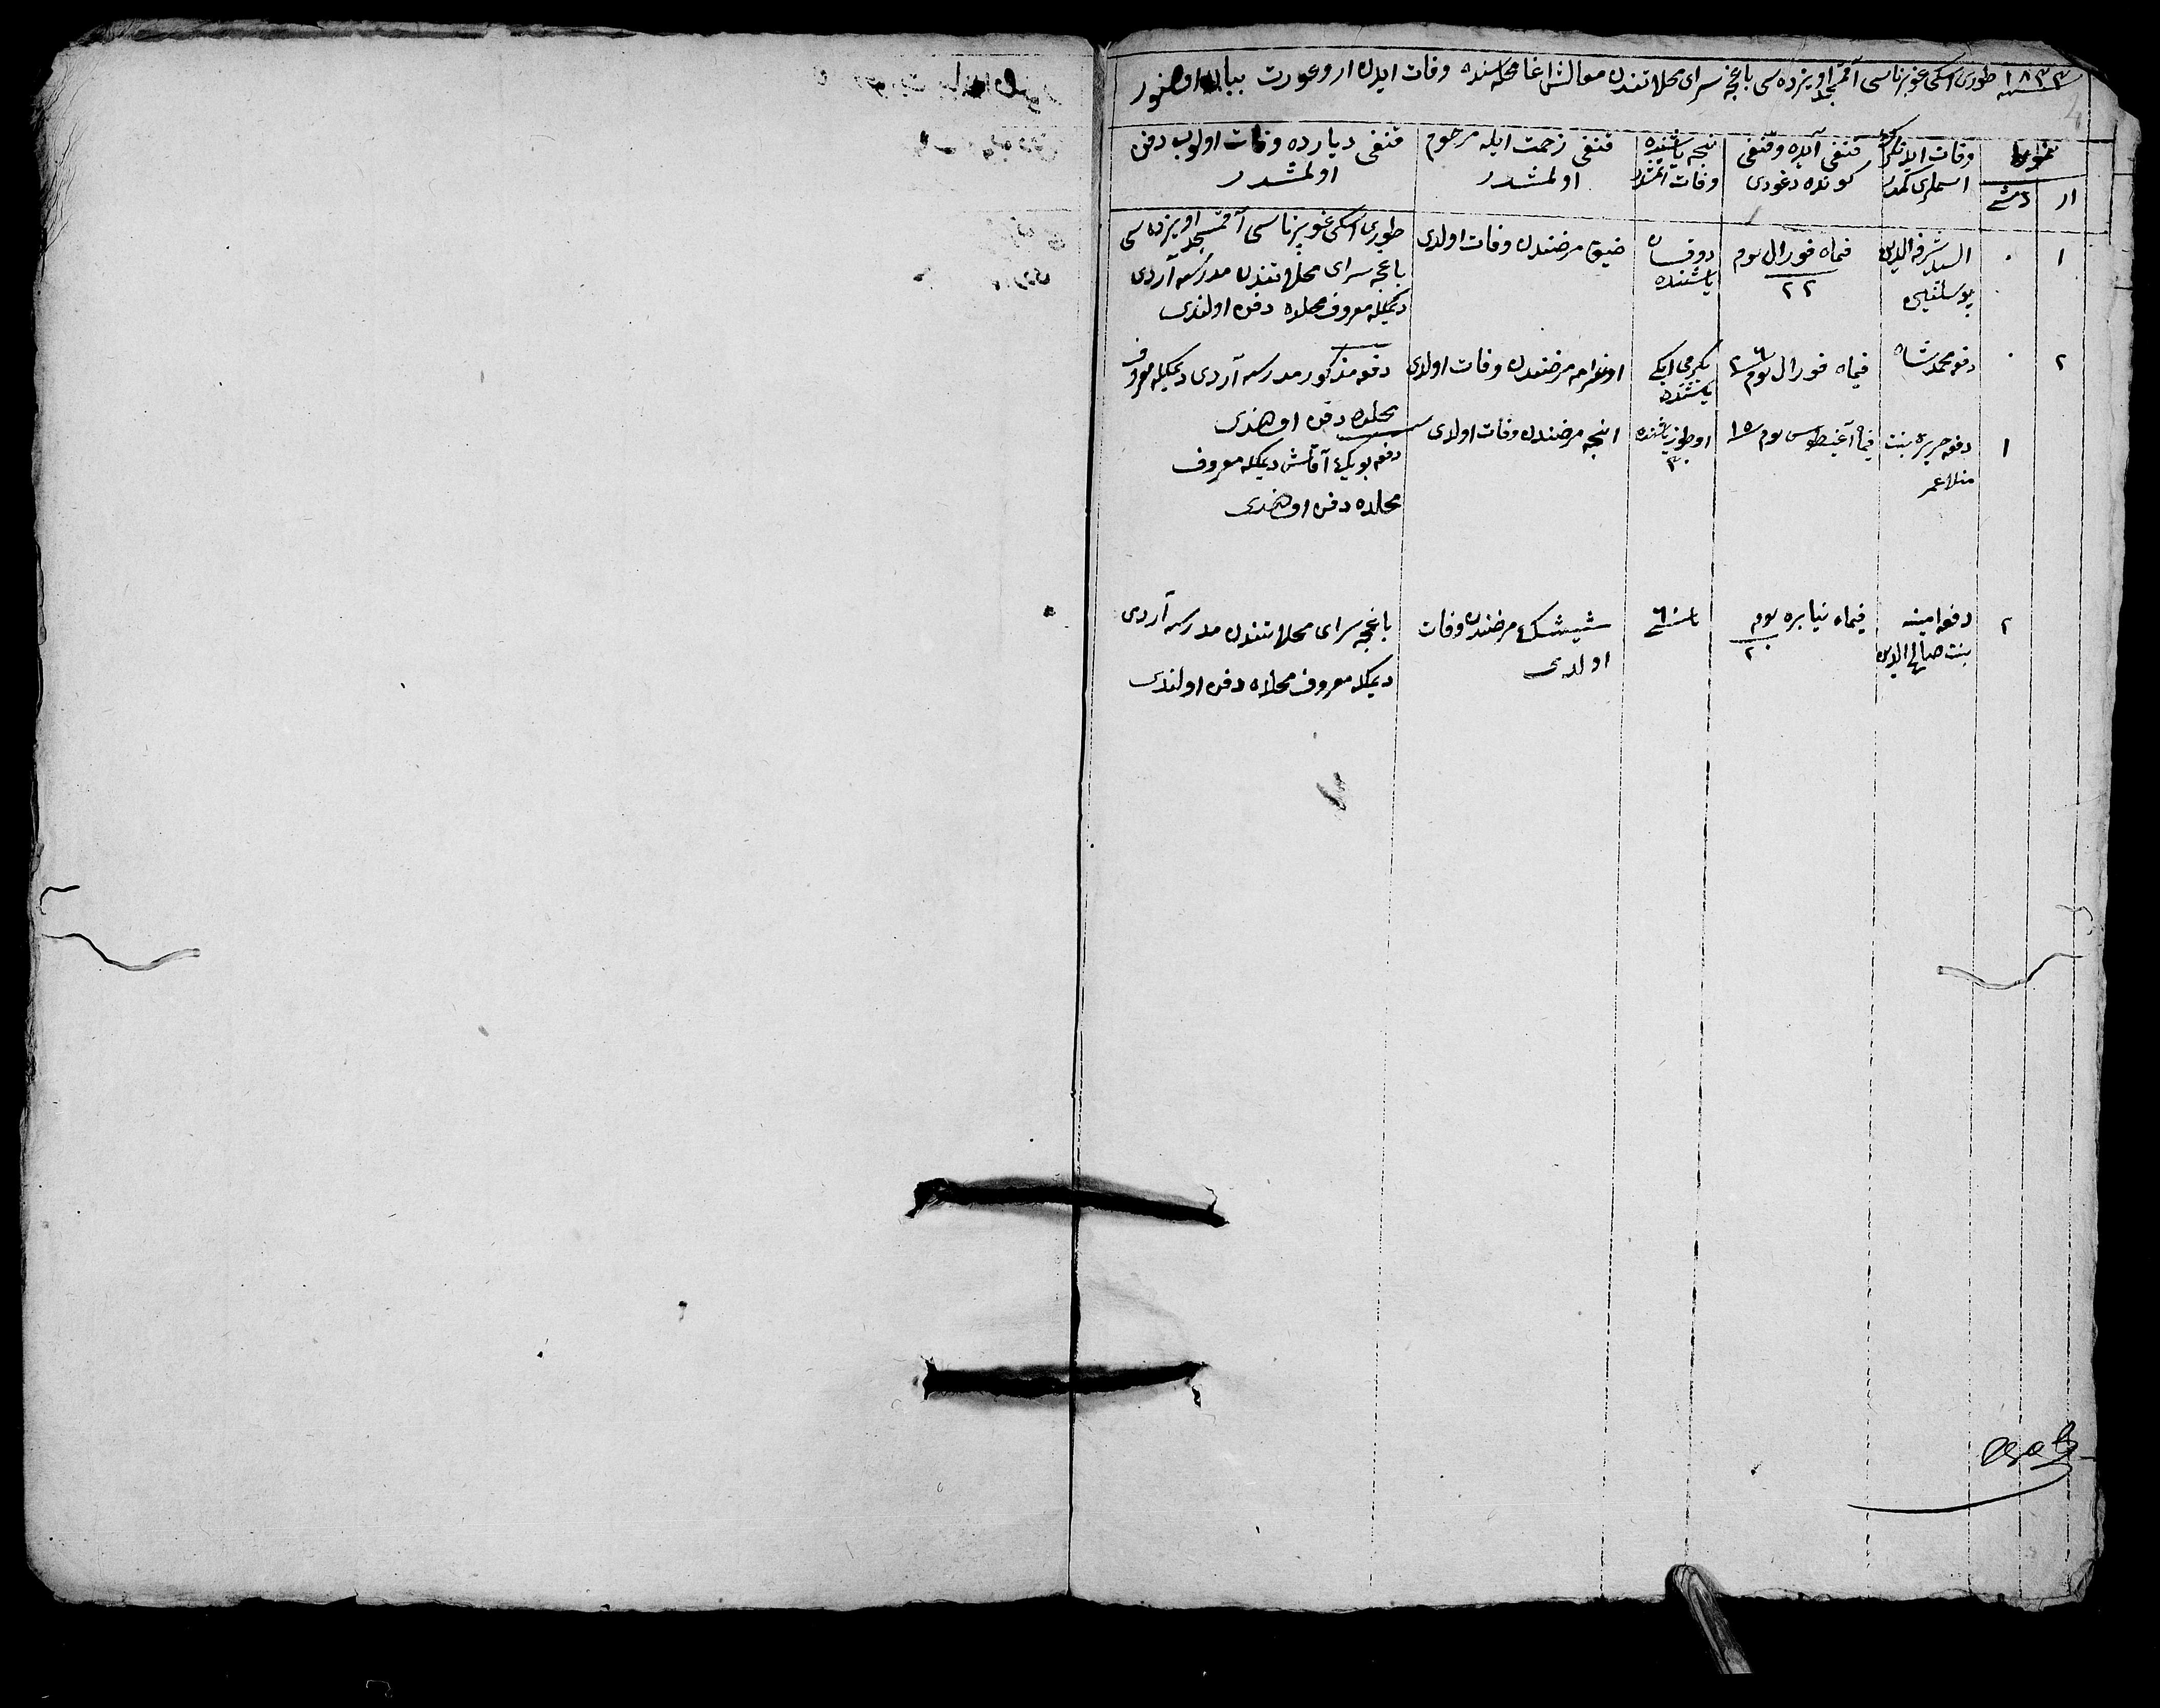 سنه ١٨٣٣ طوری اسکی غوبرناسی آقمسجد اویزده سی باغچه سرای محلاتندن معالش اغا محله سنده وفات ایدن ار و عورت بیان اولنور
نمورا
ار
دشی
وفات ایدنلرک
اسملری کمدر
قنغی آیده و قنغی
کونده دغودی
نیچه یاشنده
وفات ایتمشدر
قنغی زحمت ایله مرحوم
اولمشدر
قنغی دیارده وفات اولوب دفن
اولمشدر
١
٠
السید شرف الدین
فیماه فورال یوم
٢٢
دوقسان
یاشنده
ضیق مرضندن وفات اولدی
طوری اسکی غوبرناسی آقمسجد اویزده سی
باغچه سرای محلاتندن مدرسه آردی
دیمکله معروف محلده دفن اولندی
٢
٠
دفعه محمد شاه
فیماه فورال یوم ٢٦
یکرمی ایکی
یاشنده
مرضندن وفات اولدی
دفعه مذکور مدرسه آردی دیمکله معروف
محلده دفن اولندی
١
دفعه حریره بنت
منلا عمر
فیماه آغسطوس یوم ١٥
اوطوز یاشنده
٣٠
اینجه مرضندن وفات اولدی
دفعه بویک آقاش دیمکله معروف
محلده دفن اولندی
٢
دفعه امینه
بنت صالح الدین
فیماه نیابره یوم
٢٠
یاشی ٦
شیشک مرضندن وفات
اولدی
باغچه سرای محلاتندن مدرسه آردی
دیمکله معروف محلده دفن اولندی